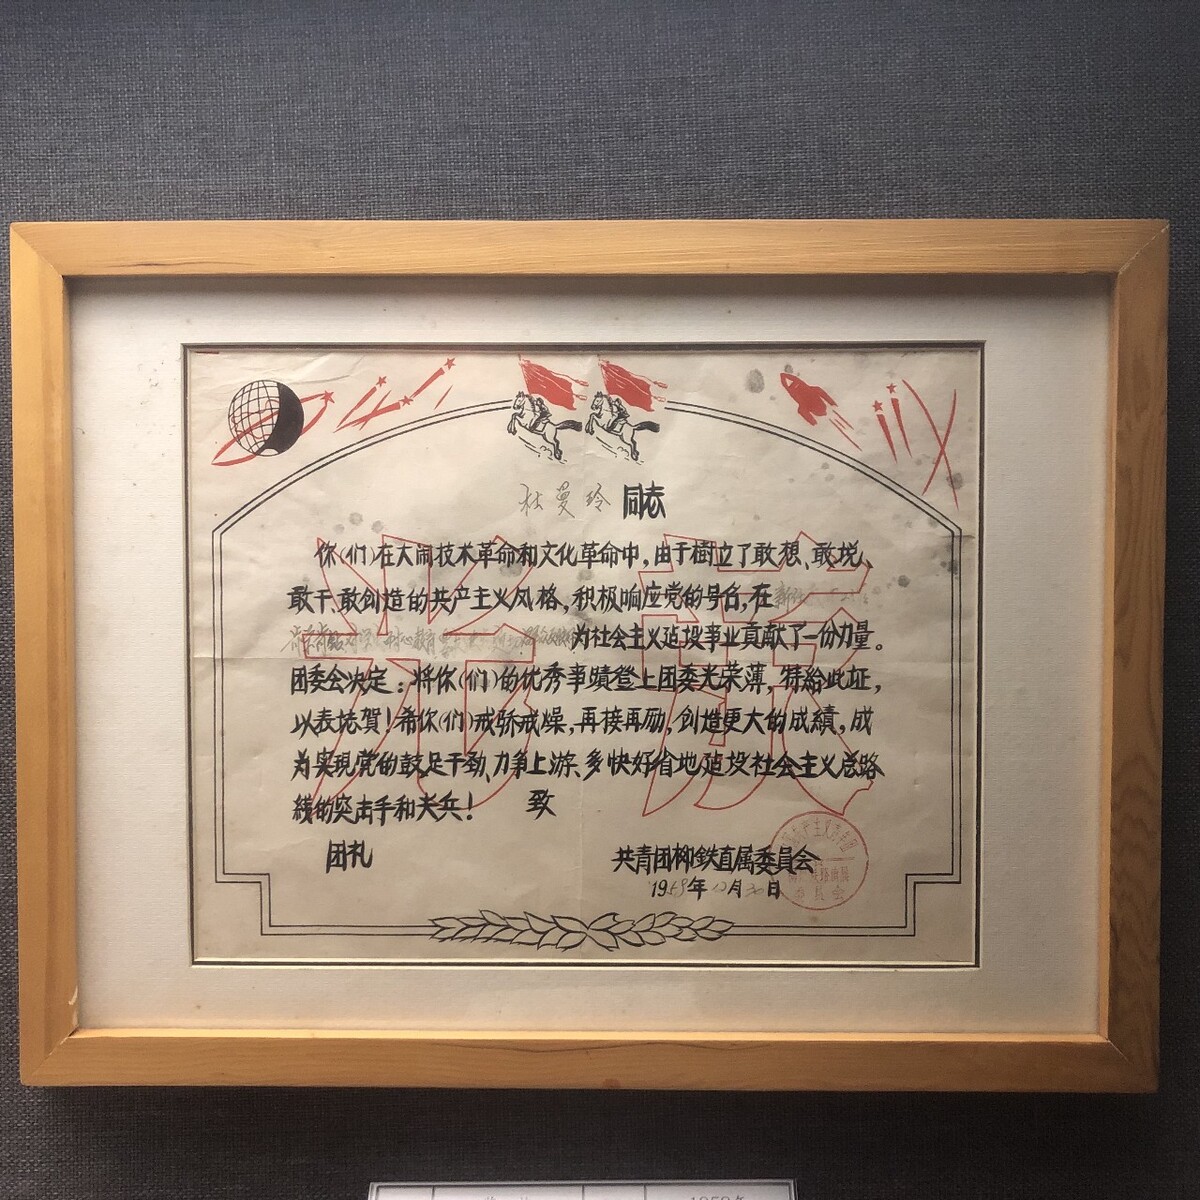 杜曼玲同志
你(们)在大闹技术革命和文化革命中，由于樹立了敢想、敢説、
敢干、敢創造的共产主义风格，积极响应党的号召，在
为社会主义建设事业貢献了一份力量。
团委会决定：将你(们)的优秀事蹟登上团委光荣薄，特給此証，
以表祝賀！希你(们)戒骄戒燥，再接再励，創造更大的成績，成
为实現党的鼓足干劲、力争上游、多快好省地建设社会主义总路
綫的突击手和尖兵！ 致
团礼
共青团柳鉄直属委員会
1958年12月30日
1958年